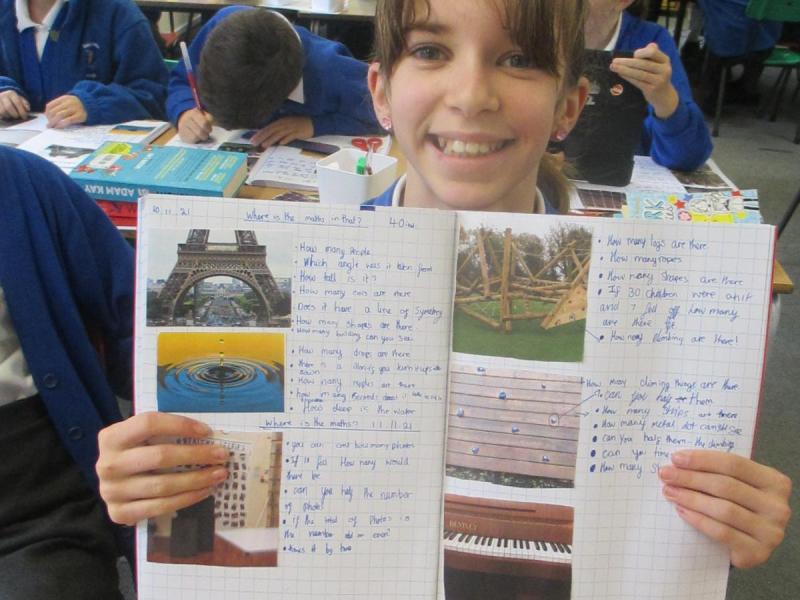 10.11.21
Where is the maths in that?
• How many people
• Which angle was it taken from
• How tall is it?
• How many cars are there
Does it have a line of Symetry
• How many shapes are there
• How many building can you see
• How many drops are there
How many
• How deep is the water
Where is the maths? 11.11.21
• you can count how many photos
• If 12 fell How many would
there be
• can you half the number
of photos
• if the total of photos is
the number odd or even?
• times it by two
• How many logs are there
• How many ropes
• How many shapes are there
• If 30 children were on it
and 7 fell off how many
are there
• How many climbing are there!
• How many climing things are there
• can you half them
• How many strips are there
• How many metal dot
• can you half them
• can you
• How many
BENTLEY
ADAM KAY